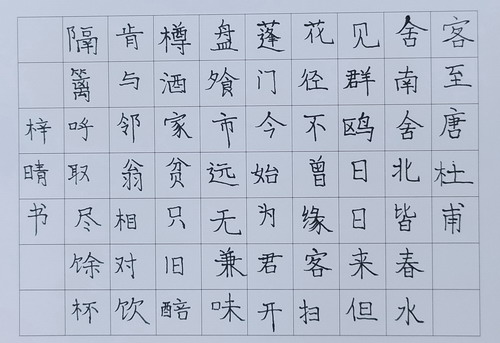 客至唐杜甫
舍南舍北皆春水
见群鸥日日来但
花径不曾缘客扫
蓬门今始为君开
盘飧市远无兼味
樽酒家贫只旧醅
肯与邻翁相对饮
隔篱呼取尽馀杯
梓晴书